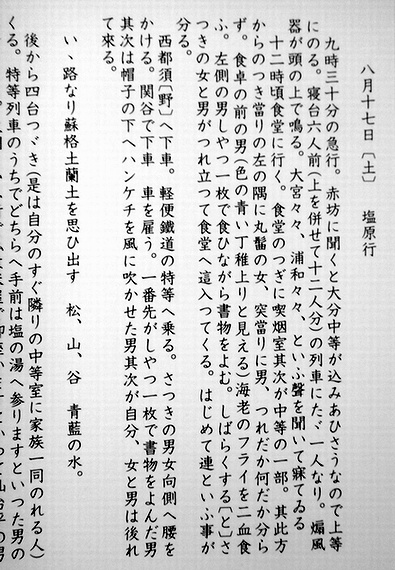 八月十七日〔土〕　塩原行
九時三十分の急行。赤坊に聞くと大分中等が込みあひさうなので上等
にのる。寝台六人前(上を併せて十二人分)の列車にたゞ一人なり。煽風
器が頭の上で鳴る。大宮々々、浦和々々、といふ聲を聞いて寐てゐる
十二時頃食堂に行く。食堂のつぎに喫烟室其次が中等の一部。其此方
からのつき當りの左の隅に丸髷の女、突當りに男、つれだか何だか分ら
ず。食卓の前の男(色の青い丁稚上りと見える)海老のフライを二皿食
ふ。左側の男しやつ一枚で食ひながら書物をよむ。しばらくする〔と〕さ
つきの女と男がつれ立つて食堂へ這入つてくる。はじめて連といふ事が
分る。
西都須〔野〕へ下車。軽便鐵道の特等へ乗る。さつきの男女向側へ腰を
かける。関谷で下車　車を雇う。一番先がしやつ一枚で書物をよんだ男
其次は帽子の下へハンケチを風に吹かせた男其次が自分、女と男は後れ
て來る。
い、路なり蘇格土蘭土を思ひ出す　松、山、谷　青藍の水。
後から四台つゞき(是は自分のすぐ隣りの中等室に家族一同のれる人)
くる。特等列車のうちでどちらへ手前は塩の湯へ参りますといつた男の